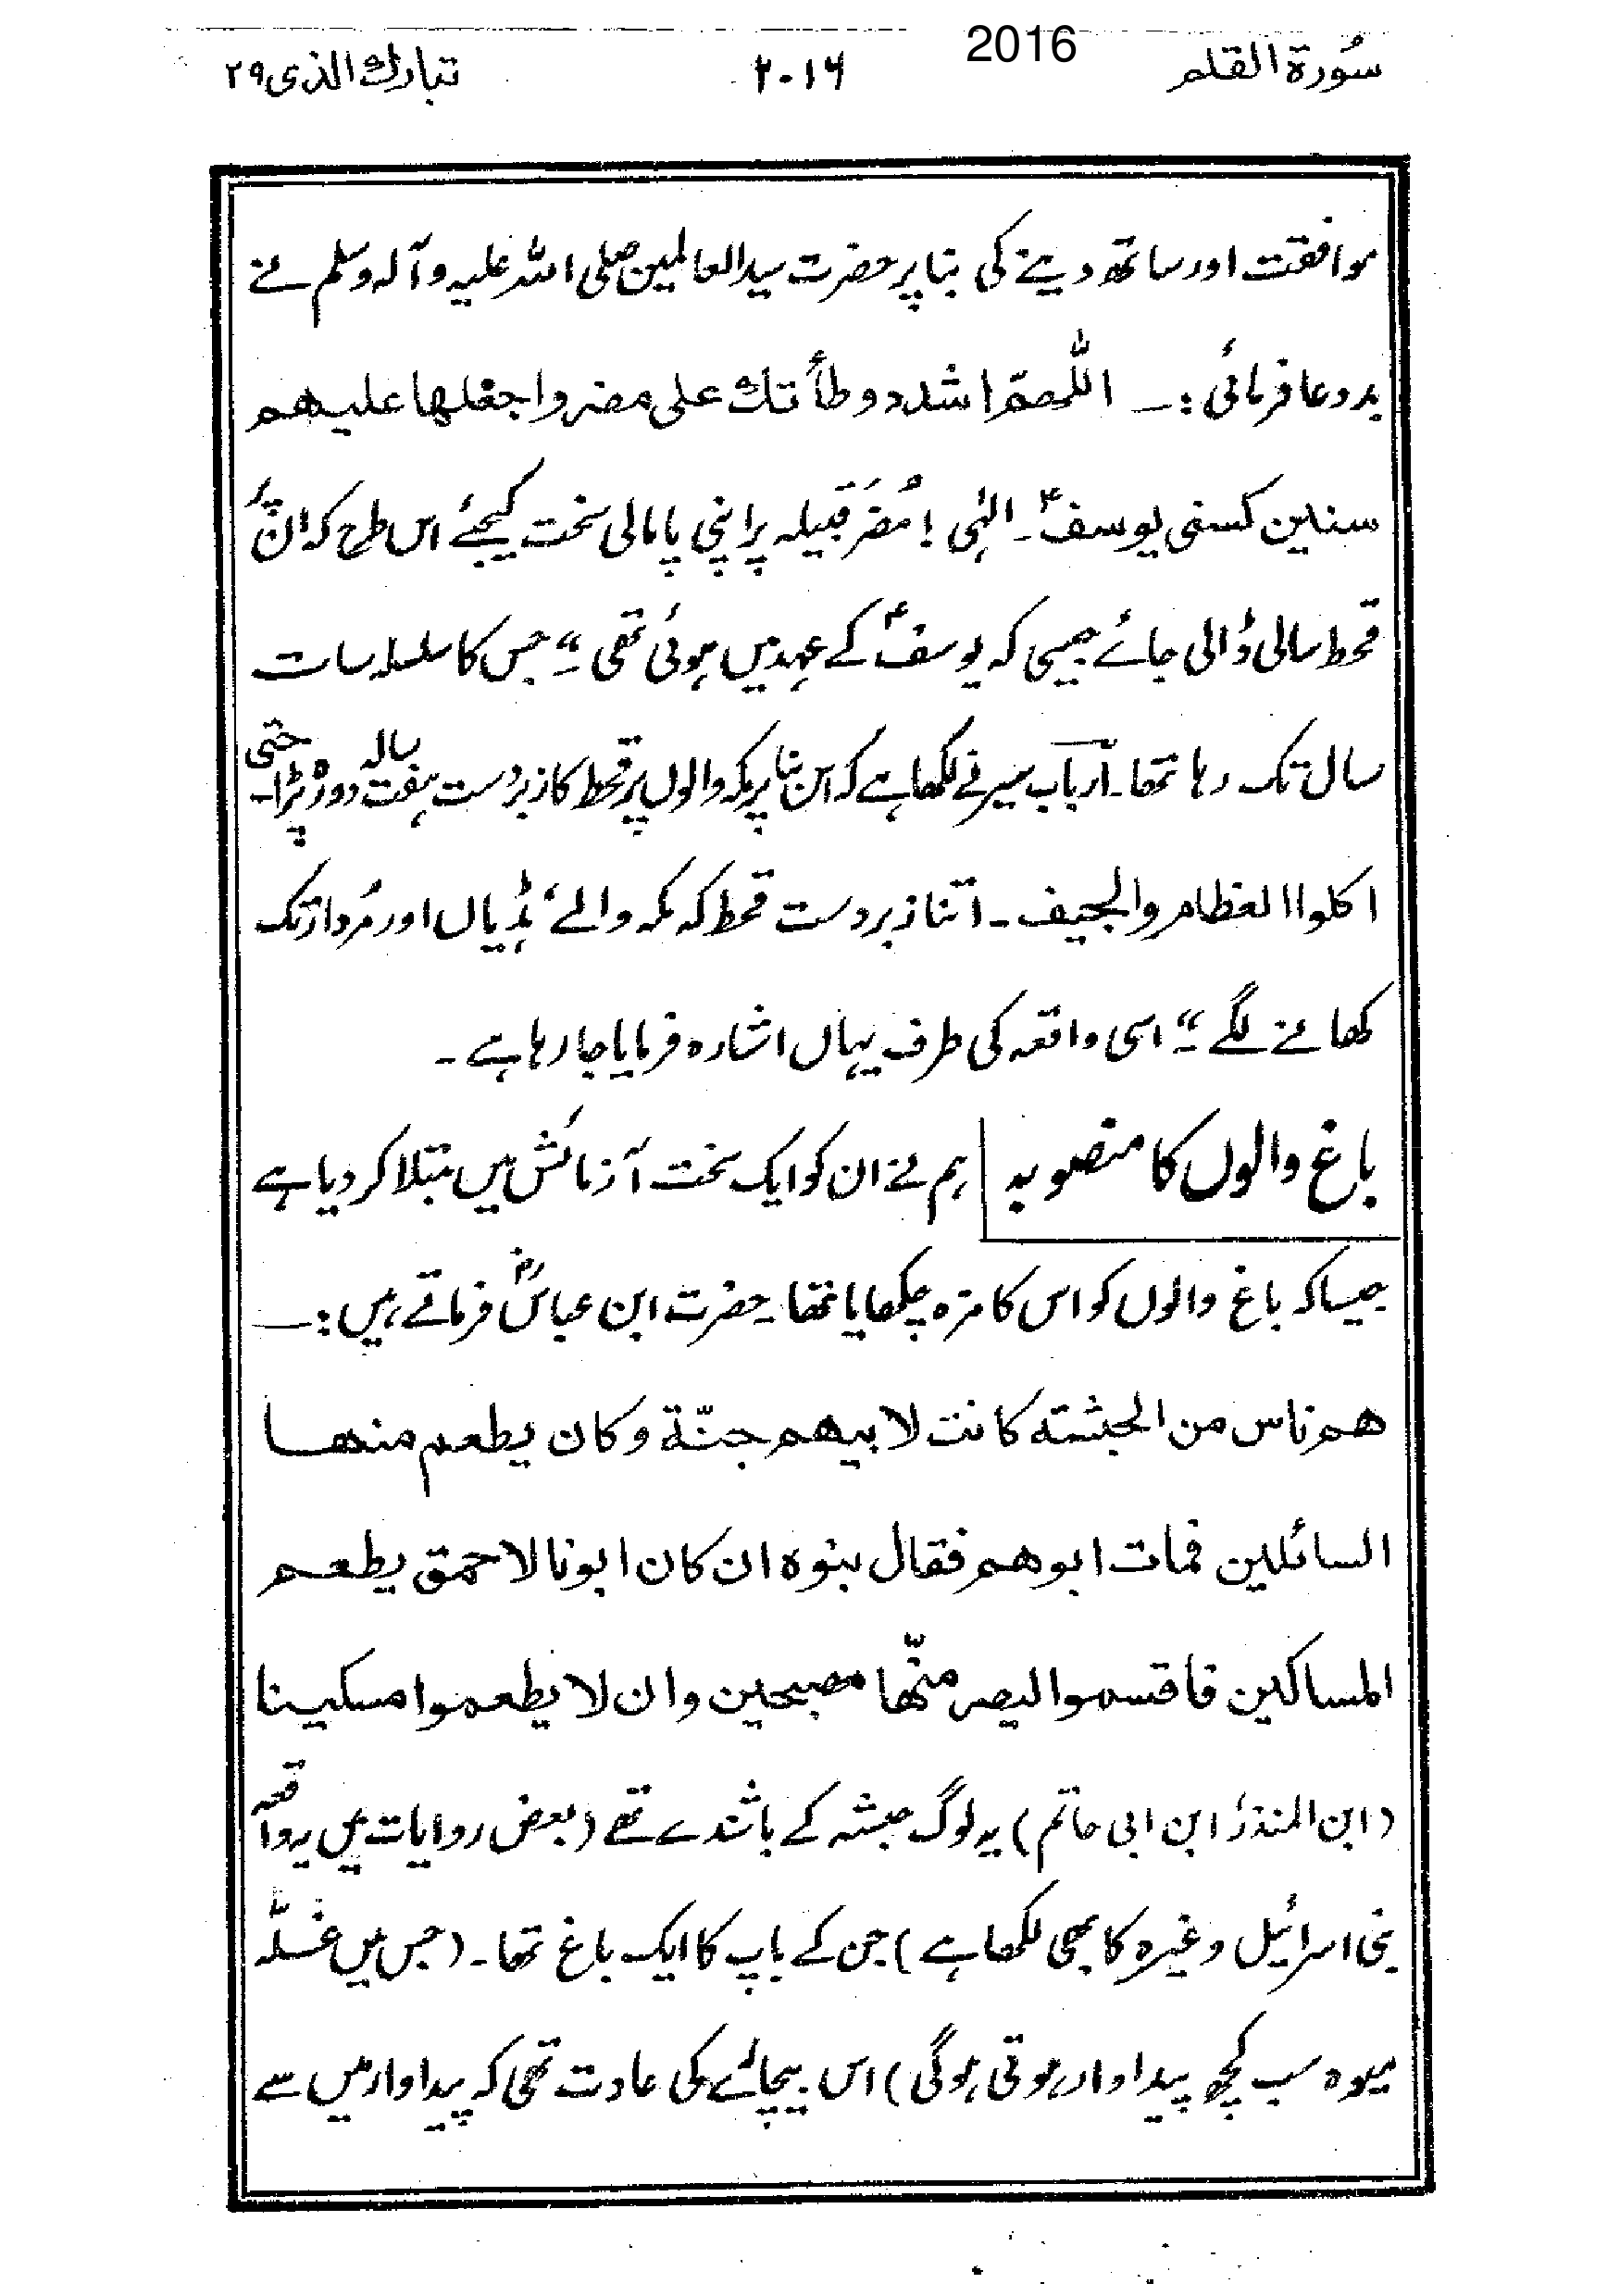 2016
سُورۃ القلم ۲۰۱۶ تبارك الذی ۲۹
موافقت اور ساتھ دینے کی بنا پر حضرت سید العالمین صلی اللہ علیہ وآلہ وسلم نے
بددعا فرمائی :ـ اللّٰھمّ اشدد وطأتك علی مضر واجعلھا علیھم
سنین کسنی یوسفؑ۔ الٰہی ! مُضَر قبیلہ پر اپنی پامالی سخت کیجئے اس طرح کہ ان پر
قحط سالی ڈالی جائے جیسی کہ یوسفؑ کے عہد میں ہوئی تھی۔“ جس کا سلسلہ سات
سال تک رہا تھا۔ ارباب سیر نے لکھا ہے کہ اس بنا پر مکہ والوں پر قحط کا زبردست ہفت سالہ دور پڑا۔ حتی
اکلوا العظام والجیف۔ اتنا زبردست قحط کہ مکہ والے، ہڈیاں اور مُردار تک
کھانے لگے۔“ اسی واقعہ کی طرف یہاں اشارہ فرمایا جا رہا ہے۔
باغ والوں کا منصوبہ ہم نے ان کو ایک سخت آزمائش میں مبتلا کر دیا ہے
جیسا کہ باغ والوں کو اس کا مزہ چکھایا تھا۔ حضرت ابن عباسؓ فرماتے ہیں :ـ
ھم ناس من الحبشۃ کانت لابیھم جنّۃ وکان یطعم منھا
السائلین فمات ابوھم فقال بنوہ ان کان ابونا لاحمق یطعم
المساکین فاقسموا لیصرمنّھا مصبحین وان لا یطعموا مسکینا
(ابن المنذر، ابن ابی حاتم) یہ لوگ حبشہ کے باشندے تھے (بعض روایات میں یہ واقعہ
بنی اسرائیل وغیرہ کا بھی لکھا ہے) جن کے باپ کا ایک باغ تھا۔ (جس میں غلّہ
میوہ سب کچھ پیداوار ہوتی ہوگی) اس بیچارے کی عادت تھی کہ پیداوار میں سے